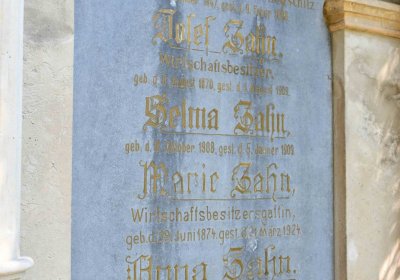 Josef Zahn,
Wirtschaftsbesitzer,
geb. d. August 1870, gest. d. August 1909.
Selma Zahn,
geb. d. October 1908, gest. d. 5. Jänner 1909.
Marie Zahn,
Wirtschaftsbesitzersgattin,
geb. d. 29. Juni 1874, gest. d. 21. März 1924.
Anna Zahn,